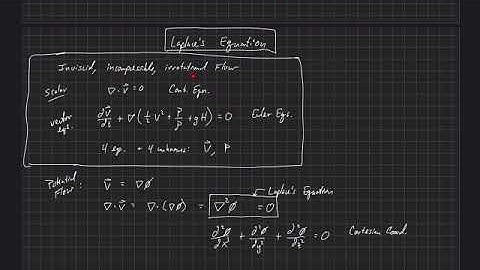 Laplace's Equation
Inviscid, incompressible, irrotational Flow
Scalar ∇·V⃗ = 0 Cont. Eqn.
vector eqs. ∂V⃗/∂t + ∇(½V² + P/ρ + gH) = 0 Euler Eqs.
4 eq. + 4 unknowns: V⃗, P
Potential Flow: V⃗ = ∇ø
Laplace's Equation
∇·V⃗ = ∇·(∇ø) = ∇²ø = 0
∂²ø/∂x² + ∂²ø/∂y² + ∂²ø/∂z² = 0 Cartesian Coord.